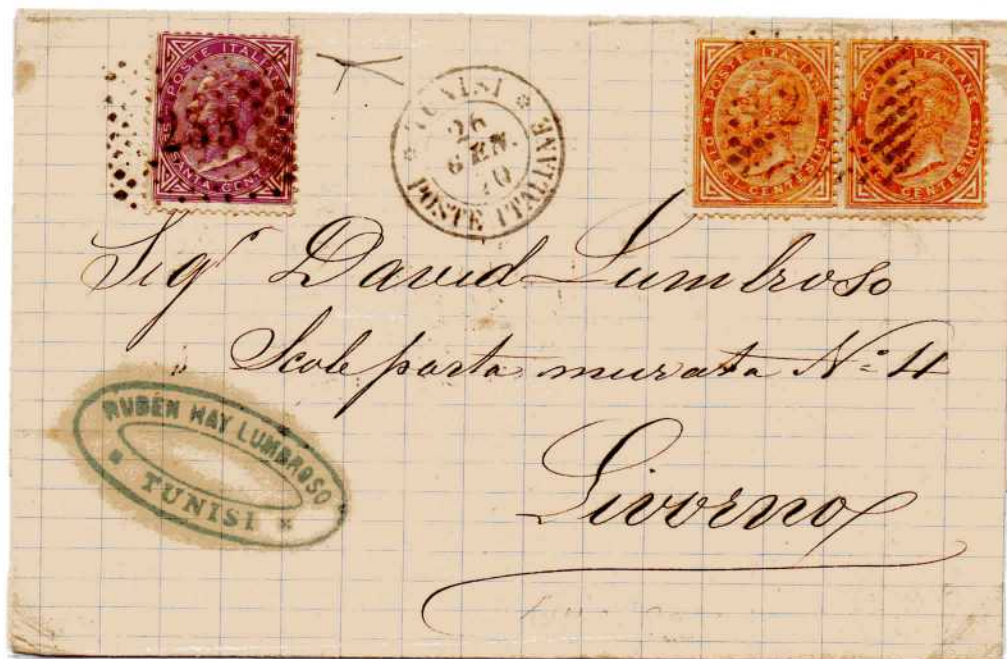 POSTE ITALIANE
SANTA CENTESIMI
235
TUNISI
26
GEN.
70
POSTE ITALIANE
POSTE ITALIANE
DIECI CENTESIMI
POSTE ITALIANE
CENTESIMI
Sigr David Lumbroso
Scole porta murata No: 4
Livorno
RUBEN HAY LUMBROSO
TUNISI